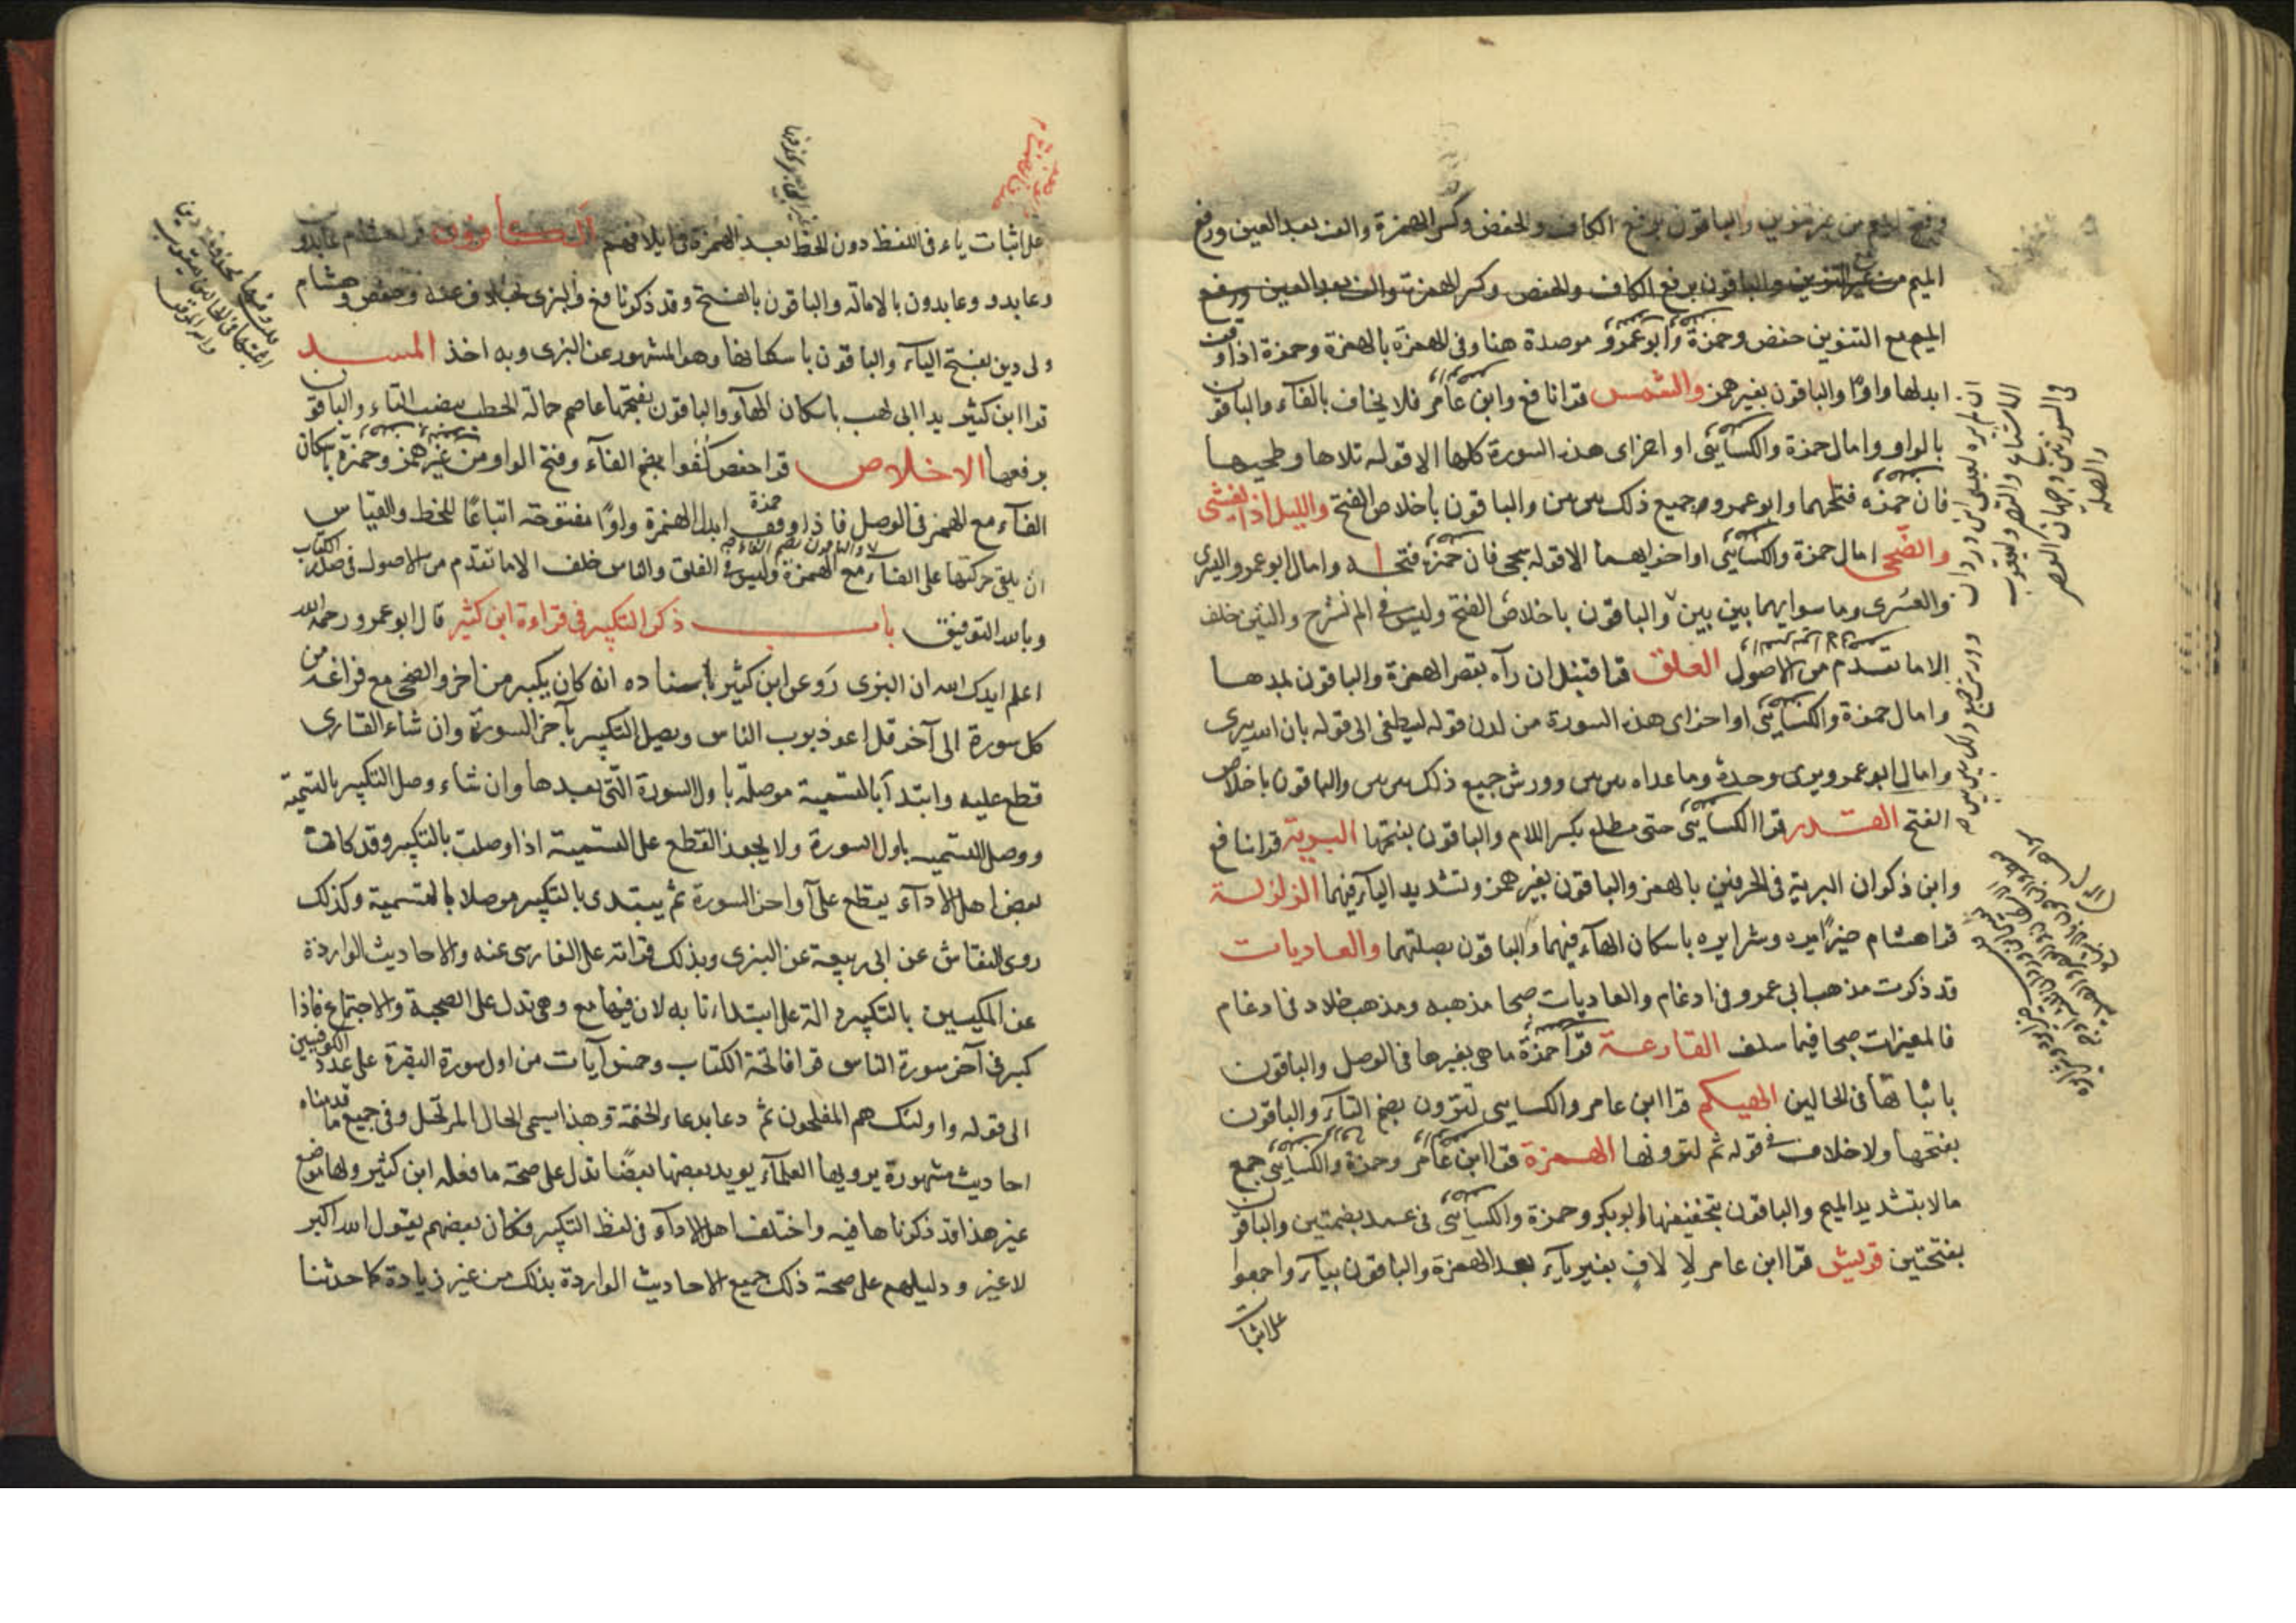 وفتح الميم من غير تنوين والباقون برفع الكاف والخفض وكسر الهمزة والف بعد العين ورفع
الميم من غير التنوين والباقون برفع الكاف والخفض وكسر الهمزة والف بعد العين ورفع
الميم مع التنوين حفص وحمزة وابو عمرو موصدة هنا وفى الهمزة بالهمزة وحمزة اذا وقف
ابدلها واوًا والباقون بغير همز والشمس قرا نافع وابن عامر فلا يخاف بالفآء والباقون
بالواو وامال حمزة والكسايى اواخر اى هذه السورة كلها الا قوله تلاها وطحيها
فان حمزه فتحهما وابو عمرو جميع ذلك بين بين والباقون باخلاص الفتح والليل اذا يغشى
والضحى امال حمزة والكسايى اواخرايهما الا قوله سجى فان حمزة فتحه وامال ابو عمرو واليسرى
والعسرى وما سوايهما بين بين والباقون باخلاص الفتح وليس فى الم نشرح والتين خلف
الا ما تقدم من الاصول العلق قرا قنبل ان رآه بقصر الهمزة والباقون بمدها
وامال حمزة والكسايى اواخر اى هذه السورة من لدن قوله ليطغى الى قوله بان الله يرى
وامال ابو عمرو يرى وحدة وما عداه بين بين وورش جميع ذلك بين بين والباقون باخلاص
الفتح القدر قرا الكسايى حتى مطلع بكسر اللام والباقون بفتحها البرية قرا نافع
وابن ذكوان البرية فى الحرفين بالهمز والباقون بغير همز وتشديد اليآء فيهما الزلزلة
قرا هشام خيرًا يره وشرا يره باسكان الهآء فيهما والباقون بصلتهما والعاديات
قد ذكرت مذهب ابى عمرو فى ادغام والعاديات صبحا مذهبه ومذهب خلاد فى ادغام
فالمغيرات صبحا فيما سلف القارعة قرا حمزة ما هى بغير ها فى الوصل والباقون
باثباتها فى الحالين الهيكم قرا ابن عامر والكسايى لترون بضم التآء والباقون
بفتحها ولا خلاف فى قوله ثم لترونها الهمزة قرا ابن عامر وحمزة والكسايى جمع
مالا بتشديد الميم والباقون بتخفيفها ابو بكر وحمزة والكسايى فى عمد بضمتين والباقون
بفتحتين قريش قرا ابن عامر لإ لاف بغير يآء بعد الهمزة والباقون بيآء واجمعوا
على اثبات
على اثبات ياء فى اللفظ دون الخط بعد الهمزة فى ايلافهم الكافرون قرا هشام عابد
وعابدو وعابدون بالامالة والباقون بالفتح وقد ذكرنا فع والبزى بخلاف عنه وحفص وهشام
ولى دين بفتح اليآء والباقون باسكانها وهو المشهور عن البزى وبه اخذ المسد
قرا ابن كثير يدا ابى لهب باسكان الهآء والباقون بفتحها عاصم حمالة الحطب بنصب التاء والباقون
برفعها الاخلاص قرا حفص كفوا بضم الفآء وفتح الواو من غير همز وحمزة باسكان
الفآء مع الهمز فى الوصل فاذا وقف حمزة ابدل الهمزة واوًا مفتوحة اتباعًا للخط والقياس
ان يلقى حركتها على الفاء والباقون بضم الفاء مع الهمزة وليس فى الفلق والناس خلف الا ما تقدم من الاصول فى صدر الكتاب
وبالله التوفيق باب ذكر التكبير فى قراءة ابن كثير قال ابو عمرو رحمه الله
اعلم ايدك الله ان البزى روى عن ابن كثير باسناده انه كان يكبر من اخر والضحى مع فراغه من
كل سورة الى آخر قل اعوذ برب الناس ويصل التكبير بآخر السورة وان شاء القارى
قطع عليه وابتدآ بالتسمية موصلة باول السورة التى بعدها وان شاء وصل التكبير بالتسمية
ووصل التسميه باول السورة ولا يجوز القطع على التسمية اذا وصلت بالتكبير وقد كان
بعض اهل الادآء يقطع على آواخر السورة ثم يبتدى بالتكبير موصلا بالتسمية وكذلك
روى النقاش عن ابى ربيعة عن البزى وبذلك قراته على الفارسى عنه والاحاديث الواردة
عن المكيين بالتكبير دالة على ابتداءنا به لان فيها مع وهى تدل على الصحبة والاجتماع فاذا
كبر فى آخر سورة الناس قرا فاتحة الكتاب وخمس آيات من اول سورة البقرة على عدد الكوفيين
الى قوله واولئك هم المفلحون ثم دعا بدعاء الختمة وهذا يسمى الحال المرتحل وفى جميع ما قدمناه
احاديث مشهورة يرويها العلمآء يويد بعضها بعضًا تدل على صحة ما فعله ابن كثير ولها موضع
غير هذا قد ذكرناها فيه واختلف اهل الادآء فى لفظ التكبير فكان بعضهم يقول الله اكبر
لا غير ودليلهم على صحة ذلك جميع الاحاديث الواردة بذلك من غير زيادة كما حدثنا